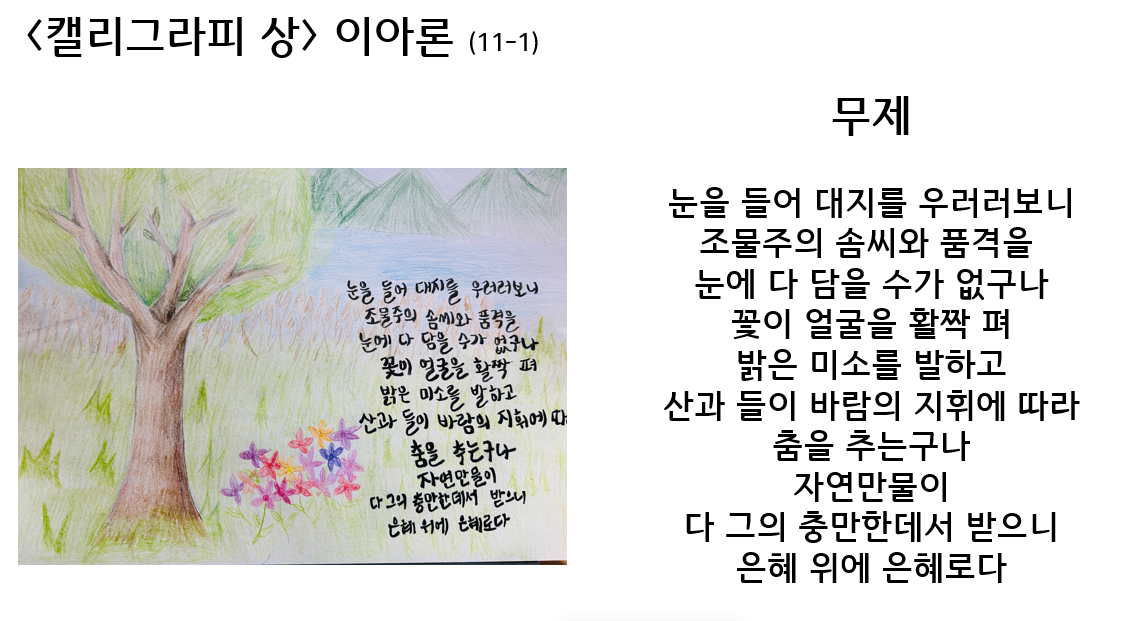 <캘리그라피 상> 이아론 (11-1)
무제
눈을 들어 대지를 우러러보니
조물주의 솜씨와 품격을
눈에 다 담을 수가 없구나
꽃이 얼굴을 활짝 펴
밝은 미소를 발하고
산과 들이 바람의 지휘에 따라
춤을 추는구나
자연만물이
다 그의 충만한데서 받으니
은혜 위에 은혜로다
눈을 들어 대지를 우러러보니
조물주의 솜씨와 품격을
눈에 다 담을 수가 없구나
꽃이 얼굴을 활짝 펴
밝은 미소를 발하고
산과 들이 바람의 지휘에 따라
춤을 추는구나
자연만물이
다 그의 충만한데서 받으니
은혜 위에 은혜로다